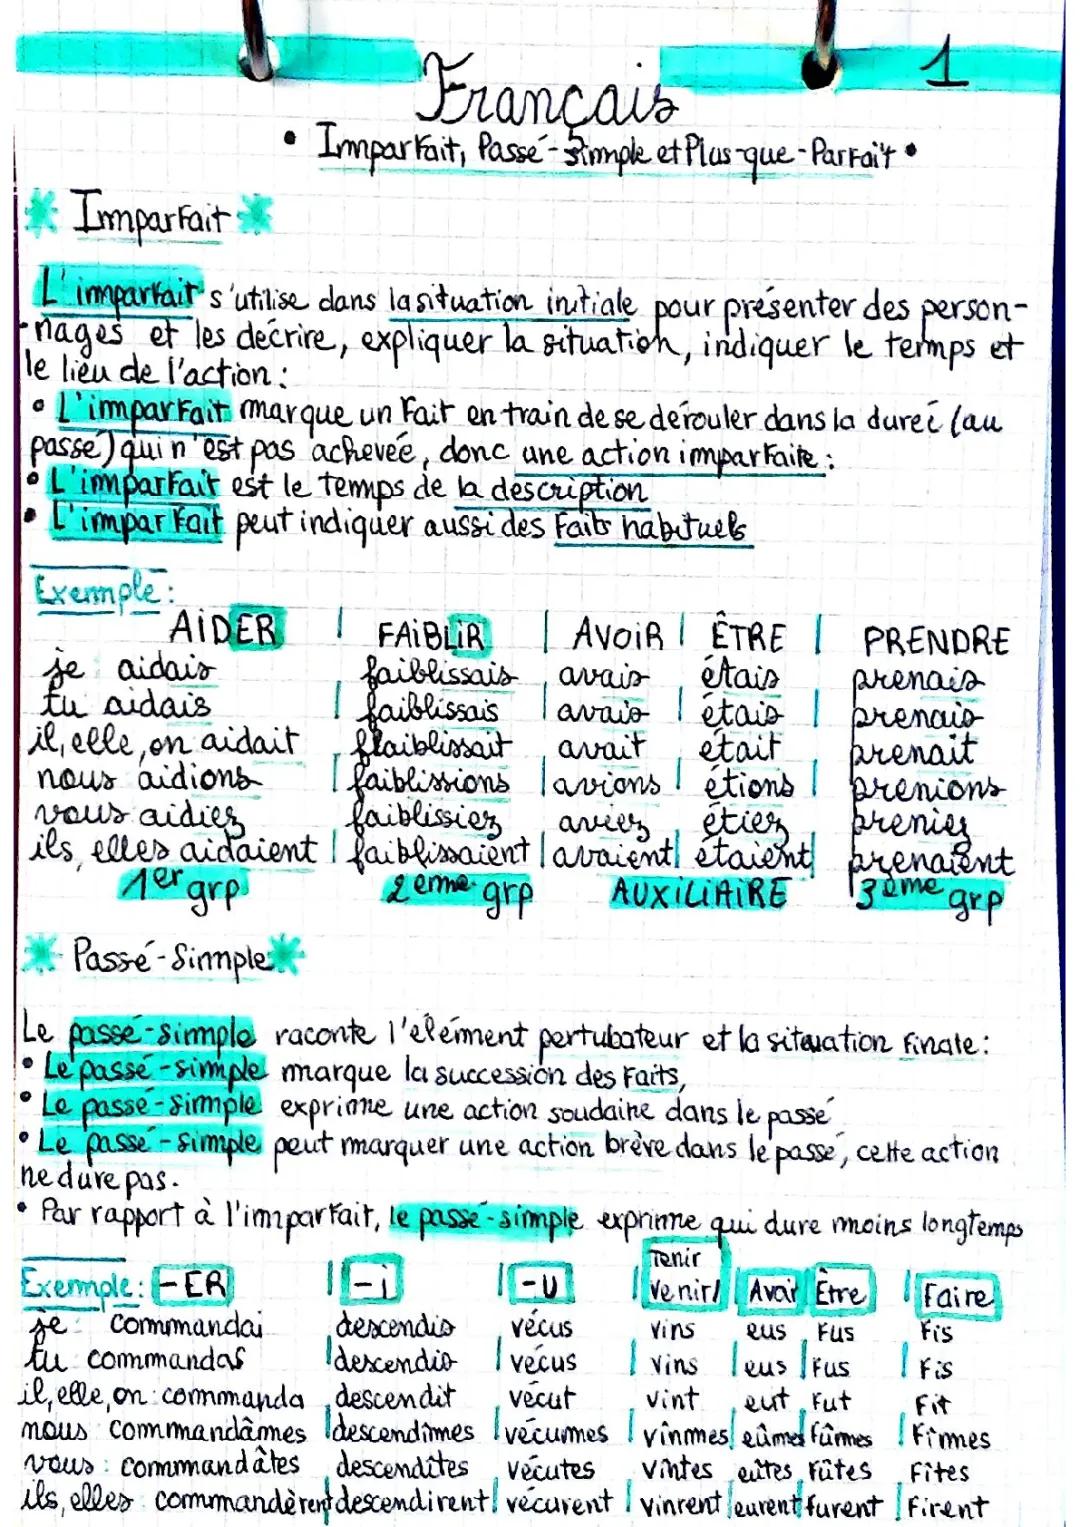 1
Français
• Imparfait, Passé-Simple et Plus-que-Parfait •
Imparfait
L'imparfait s'utilise dans la situation initiale pour présenter des person-
-nages et les décrire, expliquer la situation, indiquer le temps et
le lieu de l'action :
• L'imparfait marque un fait en train de se dérouler dans la dureé (au
passé) qui n'est pas achevée, donc une action imparfaite :
• L'imparfait est le temps de la description
• L'imparfait peut indiquer aussi des faits habituels
Exemple :
AIDER | FAIBLIR | AVOIR | ÊTRE | PRENDRE
je aidais faiblissais avais étais prenais
tu aidais | faiblissais | avais | étais | prenais
il, elle, on aidait flaiblissait avait était prenait
nous aidions | faiblissions | avions | étions | prenions
vous aidiez faiblissiez aviez étiez preniez
ils, elles aidaient | faiblissaient | avaient | étaient | prenaient
1er grp 2eme grp AUXILIAIRE 3eme grp
Passé-Simple
Le passé-simple raconte l'élément pertubateur et la situation finale :
• Le passé-simple marque la succession des faits,
• Le passé-simple exprime une action soudaine dans le passé
• Le passé-simple peut marquer une action brève dans le passé, cette action
ne dure pas.
• Par rapport à l'imparfait, le passé-simple exprime qui dure moins longtemps
Tenir
Exemple : -ER | -i | -U | Venir/ Avoir Être | Faire
je : commandai descendis vécus vins eus fus fis
tu commandas | descendis | vécus | vins | eus | fus | fis
il, elle, on : commanda descendit vécut vint eut fut fit
nous commandâmes | descendîmes | vécumes | vînmes eûmes fûmes | fîmes
vous : commandâtes descendîtes vécutes vîntes eûtes fûtes fîtes
ils, elles commandèrent descendirent | vécurent | vinrent eurent furent | firent